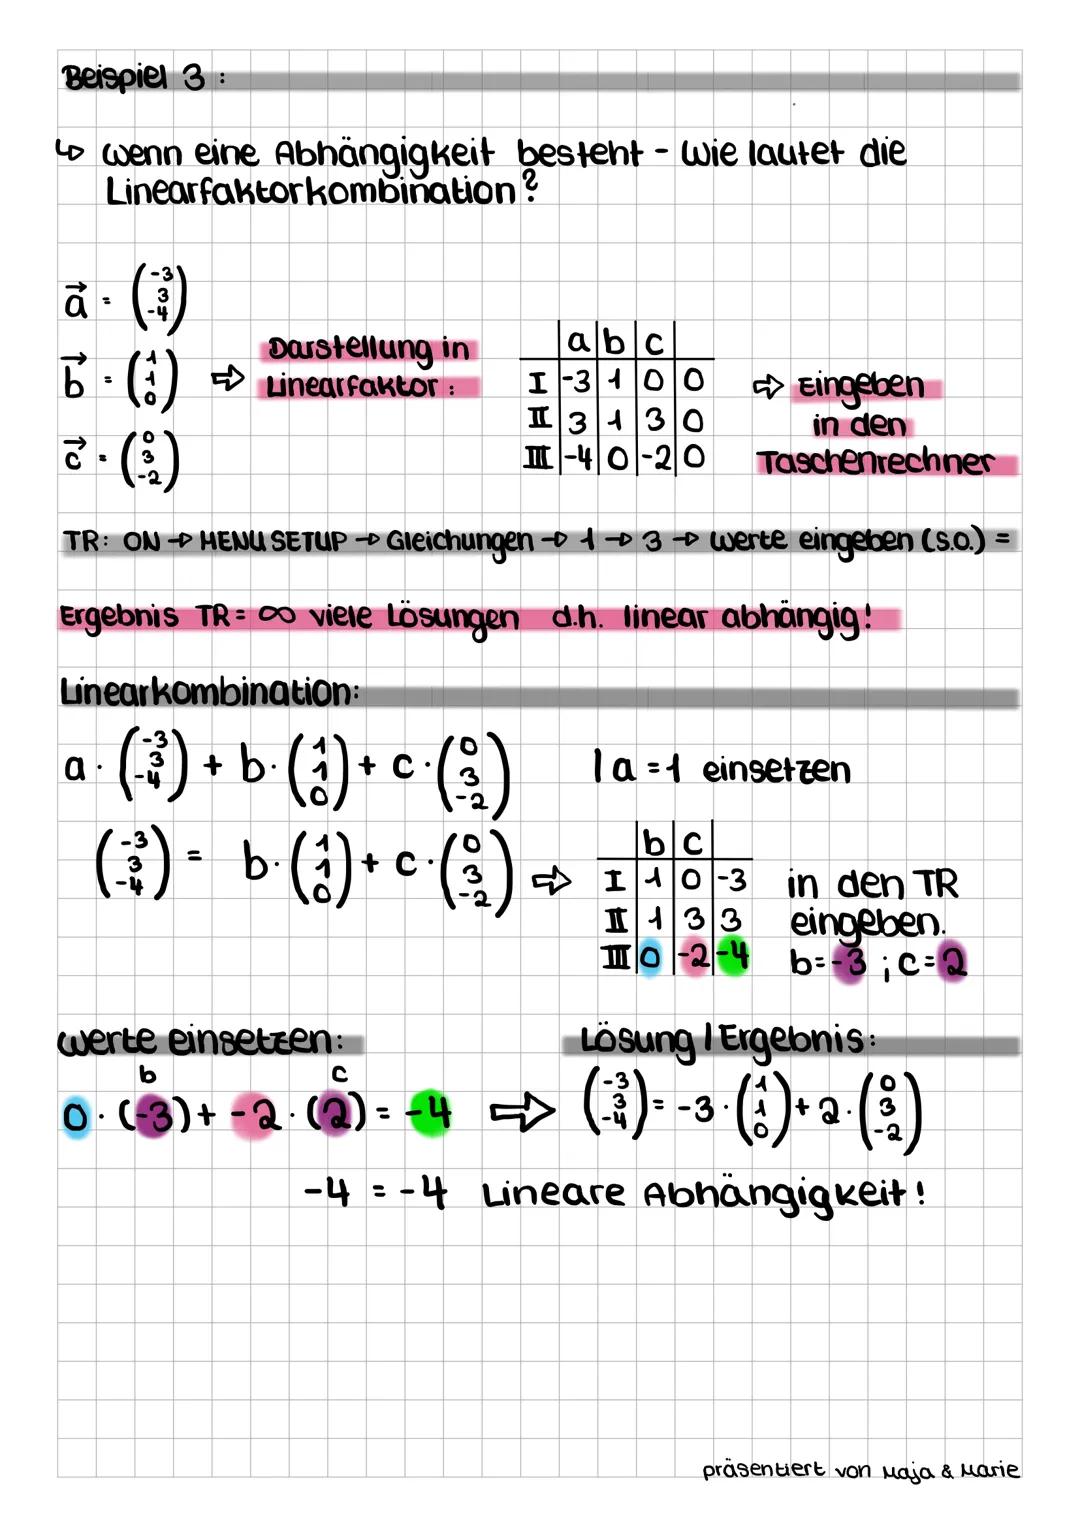 Beispiel 3 :
↳ wenn eine Abhängigkeit besteht - wie lautet die
Linearfaktorkombination?
a⃗ = (-3 3 -4)
b⃗ = (1 1 0)
c⃗ = (0 3 -2)
⇨ Darstellung in
Linearfaktor :
a | b | c |
I | -3 | 1 | 0 | 0
II | 3 | 1 | 3 | 0
III | -4 | 0 | -2 | 0
⇨ Eingeben
in den
Taschenrechner
TR: ON → MENU SETUP → Gleichungen → 1 → 3 → werte eingeben (s.o.) =
Ergebnis TR = ∞ viele Lösungen d.h. linear abhängig!
Linearkombination:
a · (-3 3 -4) + b · (1 1 0) + c · (0 3 -2) | a = 1 einsetzen
(-3 3 -4) = b · (1 1 0) + c · (0 3 -2) ⇨
b | c |
I | 1 | 0 | -3
II | 1 | 3 | 3
III | 0 | -2 | -4
in den TR
eingeben.
b = -3 ; c = 2
werte einsetzen:
b c
0 · (-3) + -2 · (2) = -4 ⇨
Lösung / Ergebnis:
(-3 3 -4) = -3 · (1 1 0) + 2 · (0 3 -2)
-4 = -4 Lineare Abhängigkeit!
präsentiert von Maja & Marie